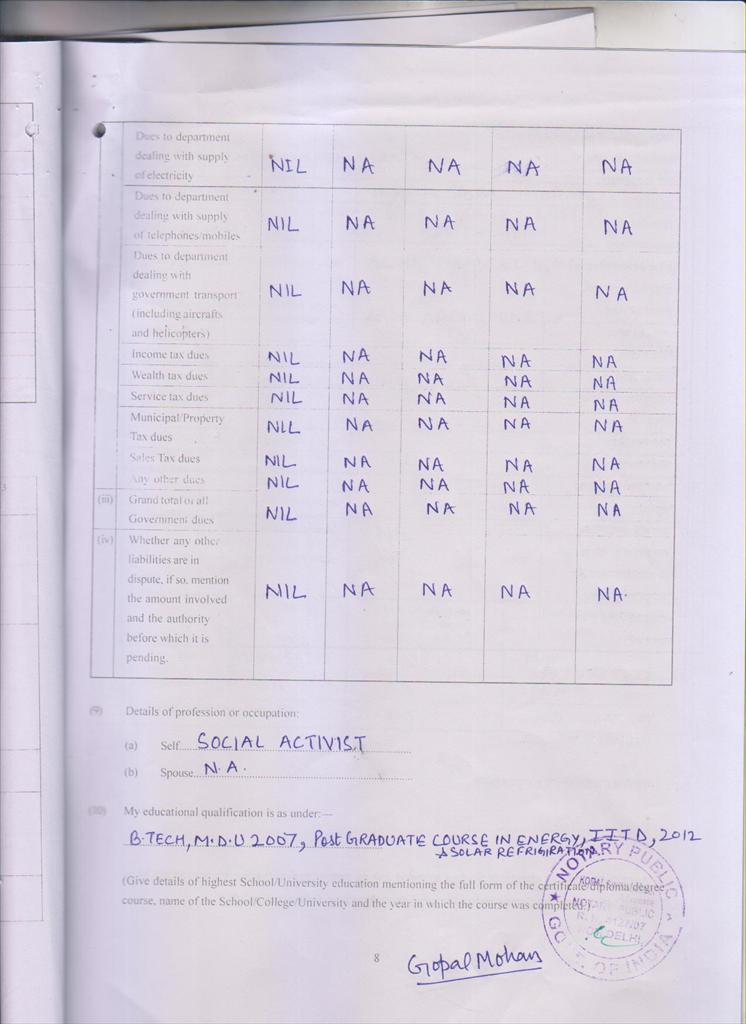 Dues to department
dealing with supply
of electricity NIL NA NA NA NA
Dues to department
dealing with supply
of telephones/mobiles NIL NA NA NA NA
Dues to department
dealing with
government transport NIL NA NA NA NA
(including aircrafts
and helicopters)
Income tax dues NIL NA NA NA NA
Wealth tax dues NIL NA NA NA NA
Service tax dues NIL NA NA NA NA
Municipal/Property
Tax dues NIL NA NA NA NA
Sales Tax dues NIL NA NA NA NA
Any other dues NIL NA NA NA NA
(iii) Grand total of all
Government dues NIL NA NA NA NA
(iv) Whether any other
liabilities are in
dispute, if so, mention
the amount involved NIL NA NA NA NA.
and the authority
before which it is
pending.
(9) Details of profession or occupation:
(a) Self SOCIAL ACTIVIST
(b) Spouse N.A.
(10) My educational qualification is as under:—
B.TECH, M.D.U 2007, Post GRADUATE COURSE IN ENERGY, IITD, 2012
& SOLAR REFRIGIRATION
(Give details of highest School/University education mentioning the full form of the certificate/diploma/degree
course, name of the School/College/University and the year in which the course was completed.)
NOTARY PUBLIC
NOTARY PUBLIC
DELHI
GOVT. OF INDIA
8
Gopal Mohan